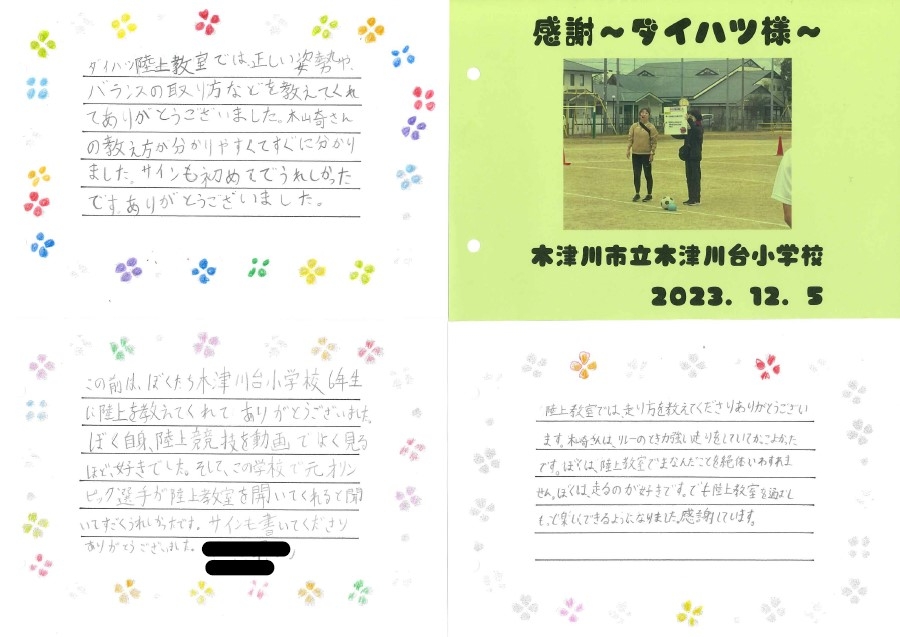 ダイハツ陸上教室では、正しい姿勢や、
バランスの取り方などを教えてくれ
てありがとうございました。木山奇さん
の教え方が分かりやすくてすぐに分かり
ました。サインも初めてでうれしかった
です。ありがとうございました。
感謝～ダイハツ様～
木津川市立木津川台小学校
2023. 12. 5
この前は、ぼくたち木津川台小学校6年生
に陸上を教えてくれて ありがとうございました。
ぼく自身、陸上競技を動画でよく見る
ほど、好きでした。そして、この学校で元オリン
ピック選手が陸上教室を開いてくれると聞
いてすごくうれしかったです。サインも書いてくださり
ありがとうございました。
陸上教室では、走り方を教えてくださりありがとうござい
ます。木崎さんは、リレーのとき力強い走りをしていてかっこよかった
です。ぼくは、陸上教室でまなんだことを絶体いわすれま
せん。ぼくは、走るのが好きです。でも陸上教室を通して
もっと楽しくできるようになりました。感謝しています。